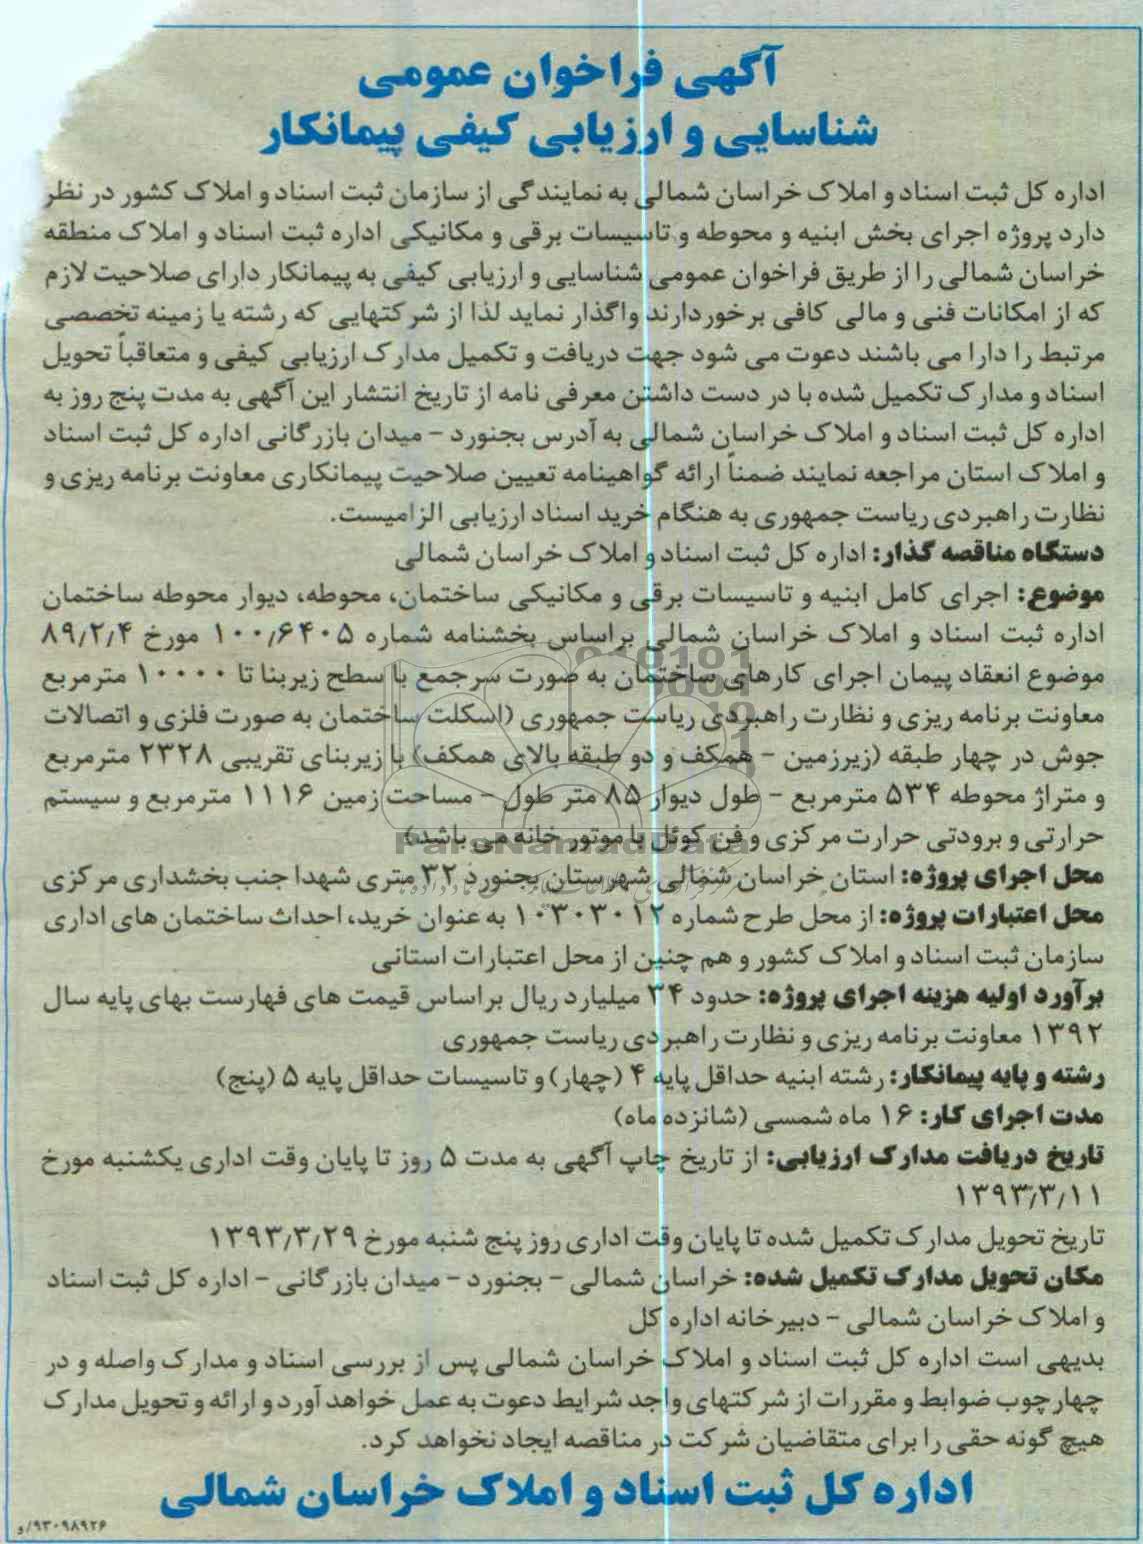 آگهی فراخوان عمومی
شناسایی و ارزیابی کیفی پیمانکار
اداره کل ثبت اسناد و املاک خراسان شمالی به نمایندگی از سازمان ثبت اسناد و املاک کشور در نظر
دارد پروژه اجرای بخش ابنیه و محوطه و تاسیسات برقی و مکانیکی اداره ثبت اسناد و املاک منطقه
خراسان شمالی را از طریق فراخوان عمومی شناسایی و ارزیابی کیفی به پیمانکار دارای صلاحیت لازم
که از امکانات فنی و مالی کافی برخوردارند واگذار نماید لذا از شرکتهایی که رشته یا زمینه تخصصی
مرتبط را دارا می باشند دعوت می شود جهت دریافت و تکمیل مدارک ارزیابی کیفی و متعاقباً تحویل
اسناد و مدارک تکمیل شده با در دست داشتن معرفی نامه از تاریخ انتشار این آگهی به مدت پنج روز به
اداره کل ثبت اسناد و املاک خراسان شمالی به آدرس بجنورد - میدان بازرگانی اداره کل ثبت اسناد
و املاک استان مراجعه نمایند ضمناً ارائه گواهینامه تعیین صلاحیت پیمانکاری معاونت برنامه ریزی و
نظارت راهبردی ریاست جمهوری به هنگام خرید اسناد ارزیابی الزامیست.
دستگاه مناقصه گذار: اداره کل ثبت اسناد و املاک خراسان شمالی
موضوع: اجرای کامل ابنیه و تاسیسات برقی و مکانیکی ساختمان، محوطه، دیوار محوطه ساختمان
اداره ثبت اسناد و املاک خراسان شمالی براساس بخشنامه شماره ۱۰۰/۶۴۰۵ مورخ ۸۹/۲/۴
موضوع انعقاد پیمان اجرای کارهای ساختمان به صورت سرجمع با سطح زیربنا تا ۱۰۰۰۰ مترمربع
معاونت برنامه ریزی و نظارت راهبردی ریاست جمهوری (اسکلت ساختمان به صورت فلزی و اتصالات
جوش در چهار طبقه (زیرزمین - همکف و دو طبقه بالای همکف) با زیربنای تقریبی ۲۳۲۸ مترمربع
و متراژ محوطه ۵۳۴ مترمربع - طول دیوار ۸۵ متر طول - مساحت زمین ۱۱۱۶ مترمربع و سیستم
حرارتی و برودتی حرارت مرکزی و فن کوئل با موتور خانه می باشد)
ParsNamadData
محل اجرای پروژه: استان خراسان شمالی شهرستان بجنورد ۳۲ متری شهدا جنب بخشداری مرکزی
محل اعتبارات پروژه: از محل طرح شماره ۱۰۳۰۳۰۱۲ به عنوان خرید، احداث ساختمان های اداری
سازمان ثبت اسناد و املاک کشور و هم چنین از محل اعتبارات استانی
برآورد اولیه هزینه اجرای پروژه: حدود ۳۴ میلیارد ریال براساس قیمت های فهارست بهای پایه سال
۱۳۹۲ معاونت برنامه ریزی و نظارت راهبردی ریاست جمهوری
رشته و پایه پیمانکار: رشته ابنیه حداقل پایه ۴ (چهار) و تاسیسات حداقل پایه ۵ (پنج)
مدت اجرای کار: ۱۶ ماه شمسی (شانزده ماه)
تاریخ دریافت مدارک ارزیابی: از تاریخ چاپ آگهی به مدت ۵ روز تا پایان وقت اداری یکشنبه مورخ
۱۳۹۳/۳/۱۱
تاریخ تحویل مدارک تکمیل شده تا پایان وقت اداری روز پنج شنبه مورخ ۱۳۹۳/۳/۲۹
مکان تحویل مدارک تکمیل شده: خراسان شمالی - بجنورد - میدان بازرگانی - اداره کل ثبت اسناد
و املاک خراسان شمالی - دبیرخانه اداره کل
بدیهی است اداره کل ثبت اسناد و املاک خراسان شمالی پس از بررسی اسناد و مدارک واصله و در
چهارچوب ضوابط و مقررات از شرکتهای واجد شرایط دعوت به عمل خواهد آورد و ارائه و تحویل مدارک
هیچ گونه حقی را برای متقاضیان شرکت در مناقصه ایجاد نخواهد کرد.
اداره کل ثبت اسناد و املاک خراسان شمالی
۹۳۰۹۸۹۲۶/و